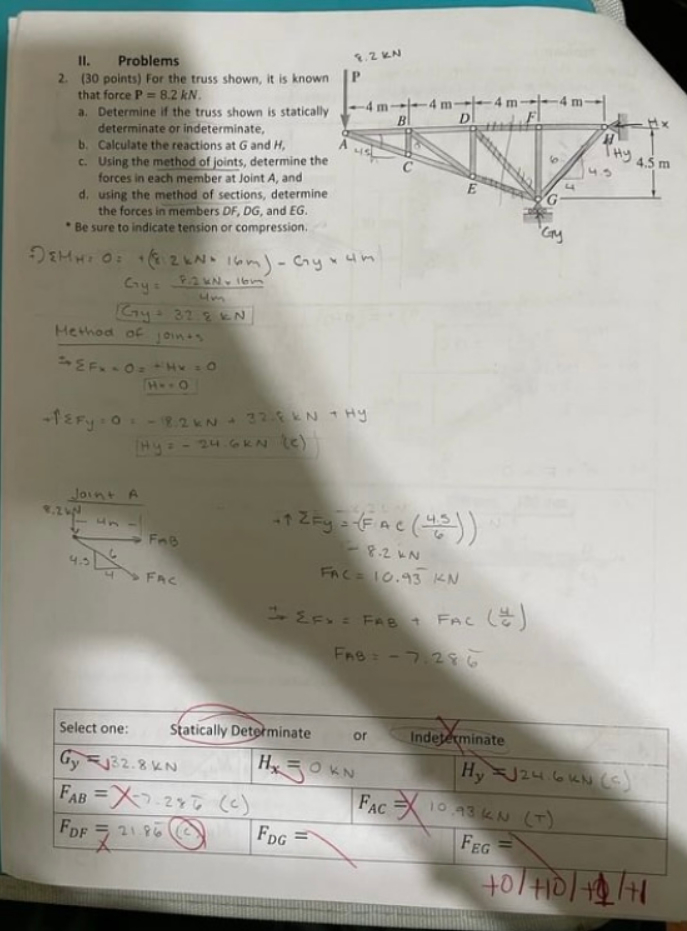 II. Problems
2. (30 points) For the truss shown, it is known
that force P = 8.2 kN.
a. Determine if the truss shown is statically
determinate or indeterminate,
b. Calculate the reactions at G and H,
c. Using the method of joints, determine the
forces in each member at Joint A, and
d. using the method of sections, determine
the forces in members DF, DG, and EG.
* Be sure to indicate tension or compression.
8.2 KN
P
4 m 4 m 4 m 4 m
A B D F H Hx
4.5 C E G Hy 4.5 m
6 4.5
4
Gy
ΣMH = 0 = +(8.2 kN × 16m) - Gy × 4m
Gy = 8.2 kN × 16m
4m
Gy = 32.8 kN
Method of joints
ΣFx = 0 = +Hx = 0
Hx = 0
+↑ΣFy = 0 = -8.2 kN + 32.8 kN + Hy
Hy = -24.6 kN (C)
Joint A
8.2kN
4m
FAB
4.5 6
4 FAC
+↑ΣFy = -(FAC(4.5/6))
- 8.2 kN
FAC = 10.93 KN
ΣFx = FAB + FAC (4/6)
FAB = -7.286
Select one: Statically Determinate or Indeterminate
Gy = 32.8 KN Hx = 0 KN Hy = 24.6 KN (C)
FAB = -7.286 (C) FAC = 10.93 KN (T)
FDF = 21.86 (C) FDG = FEG =
+0/+10/+1/+1